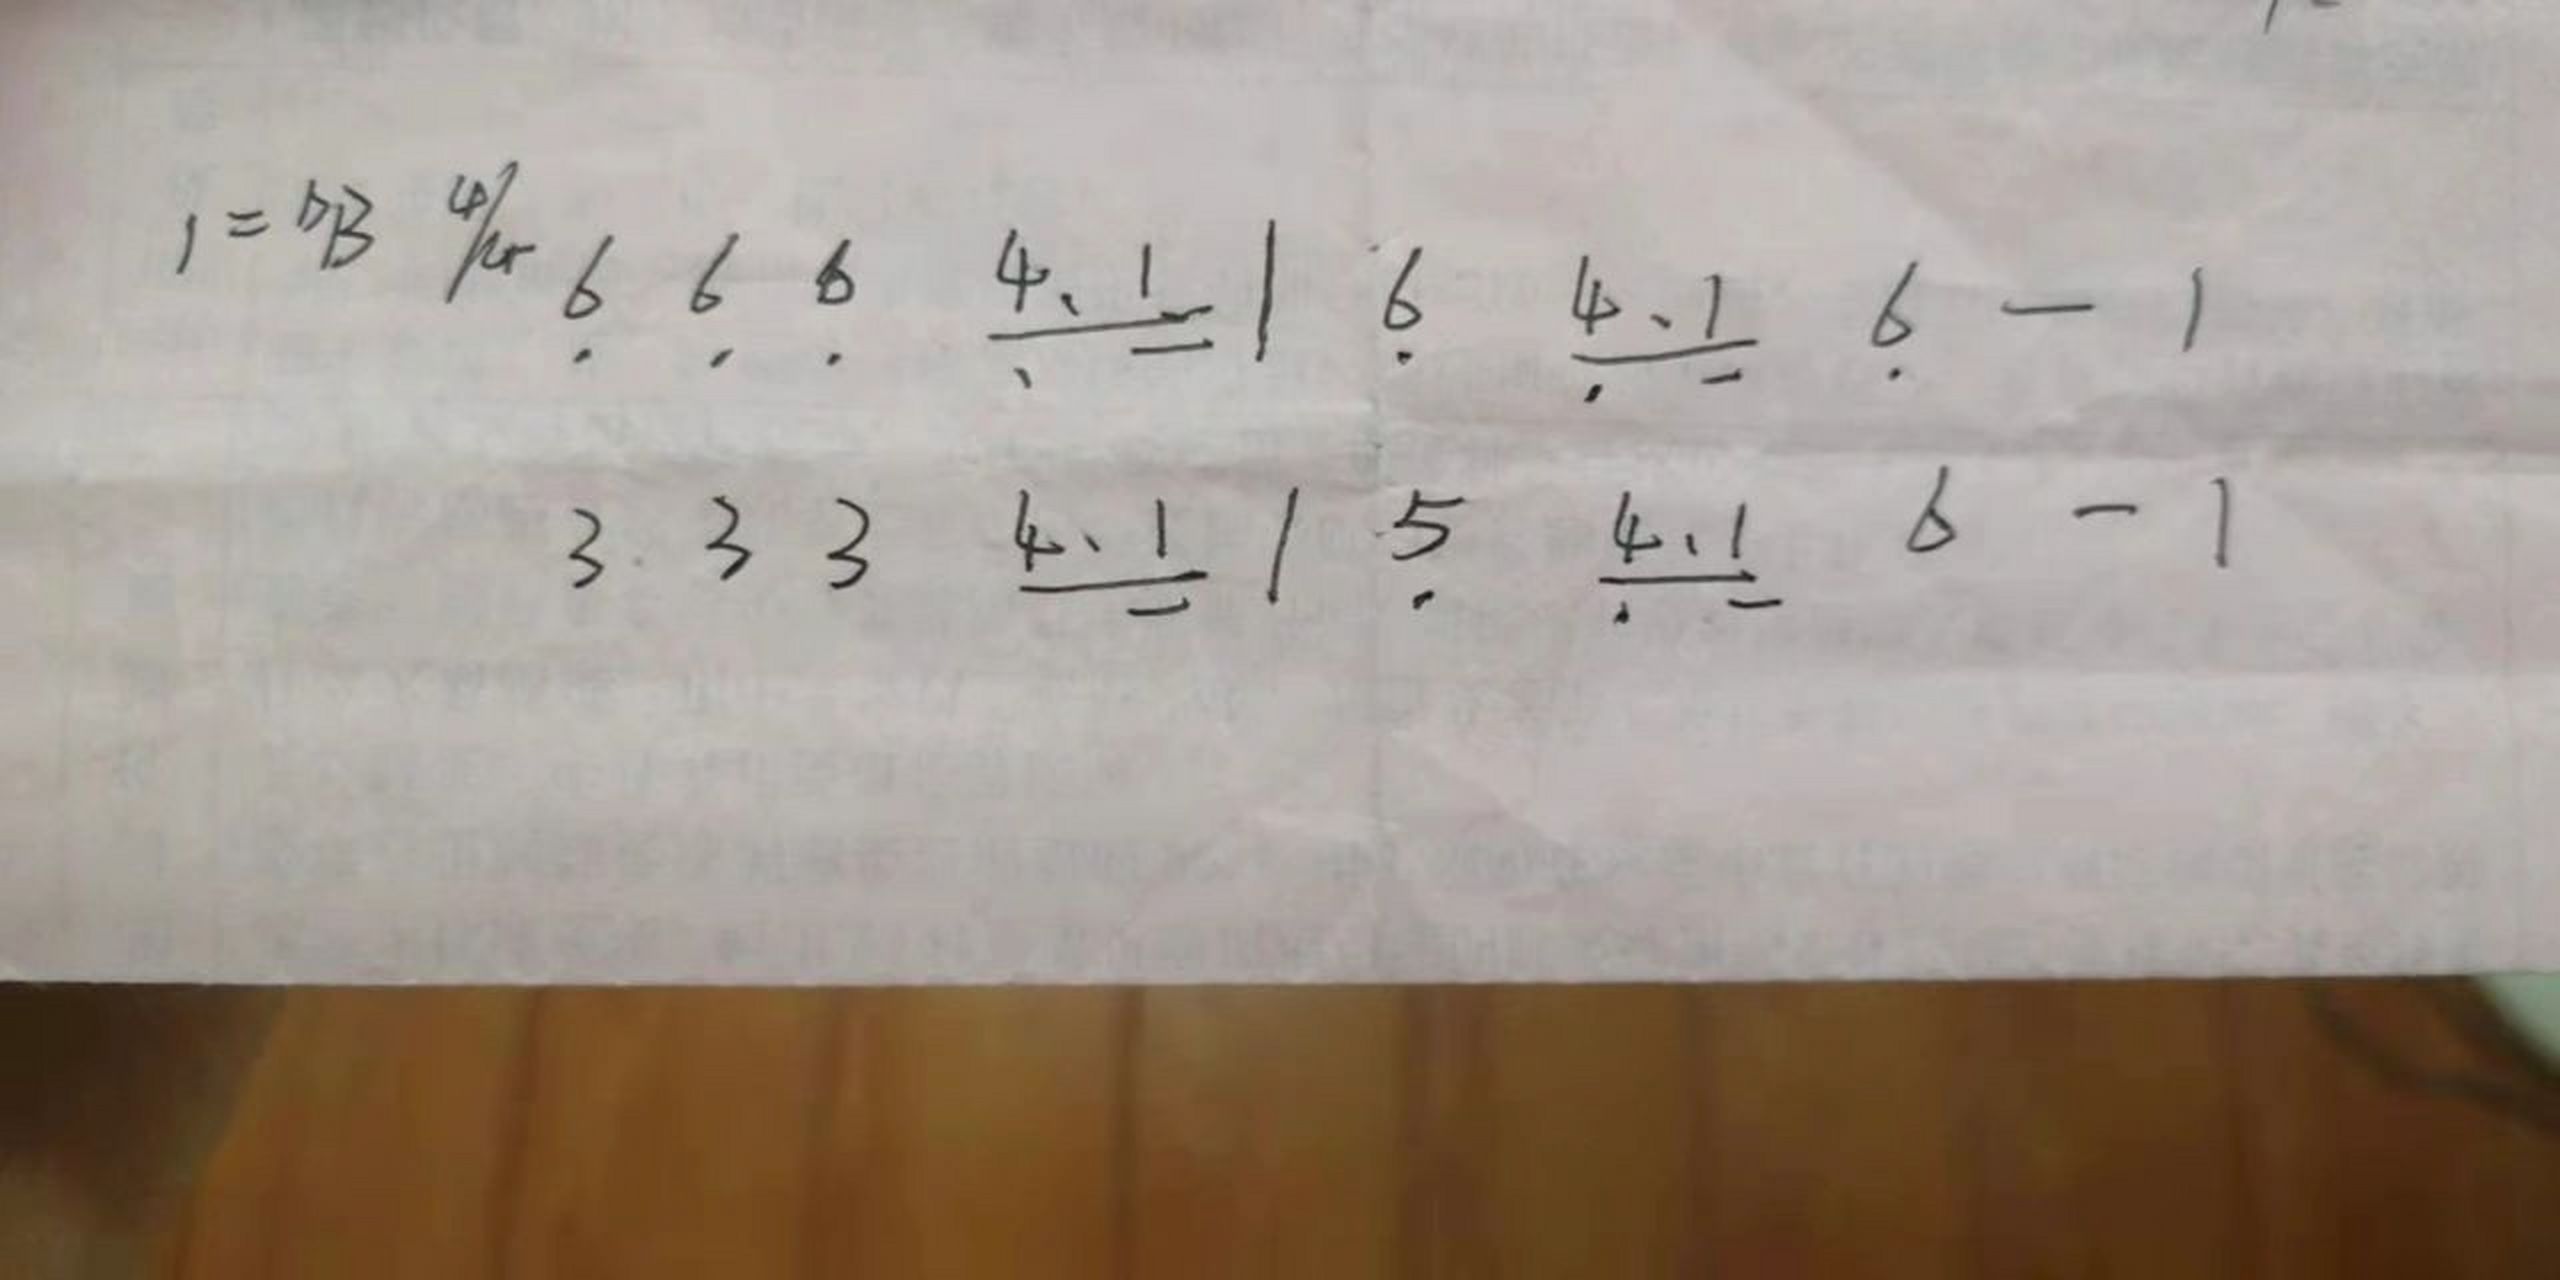 1=♭B 4/4 6̣ 6̣ 6̣ 4̣. 1 | 6̣ 4̣. 1 6̣ - 1
3 3 3 4. 1 | 5̣ 4̣. 1 6 - 1